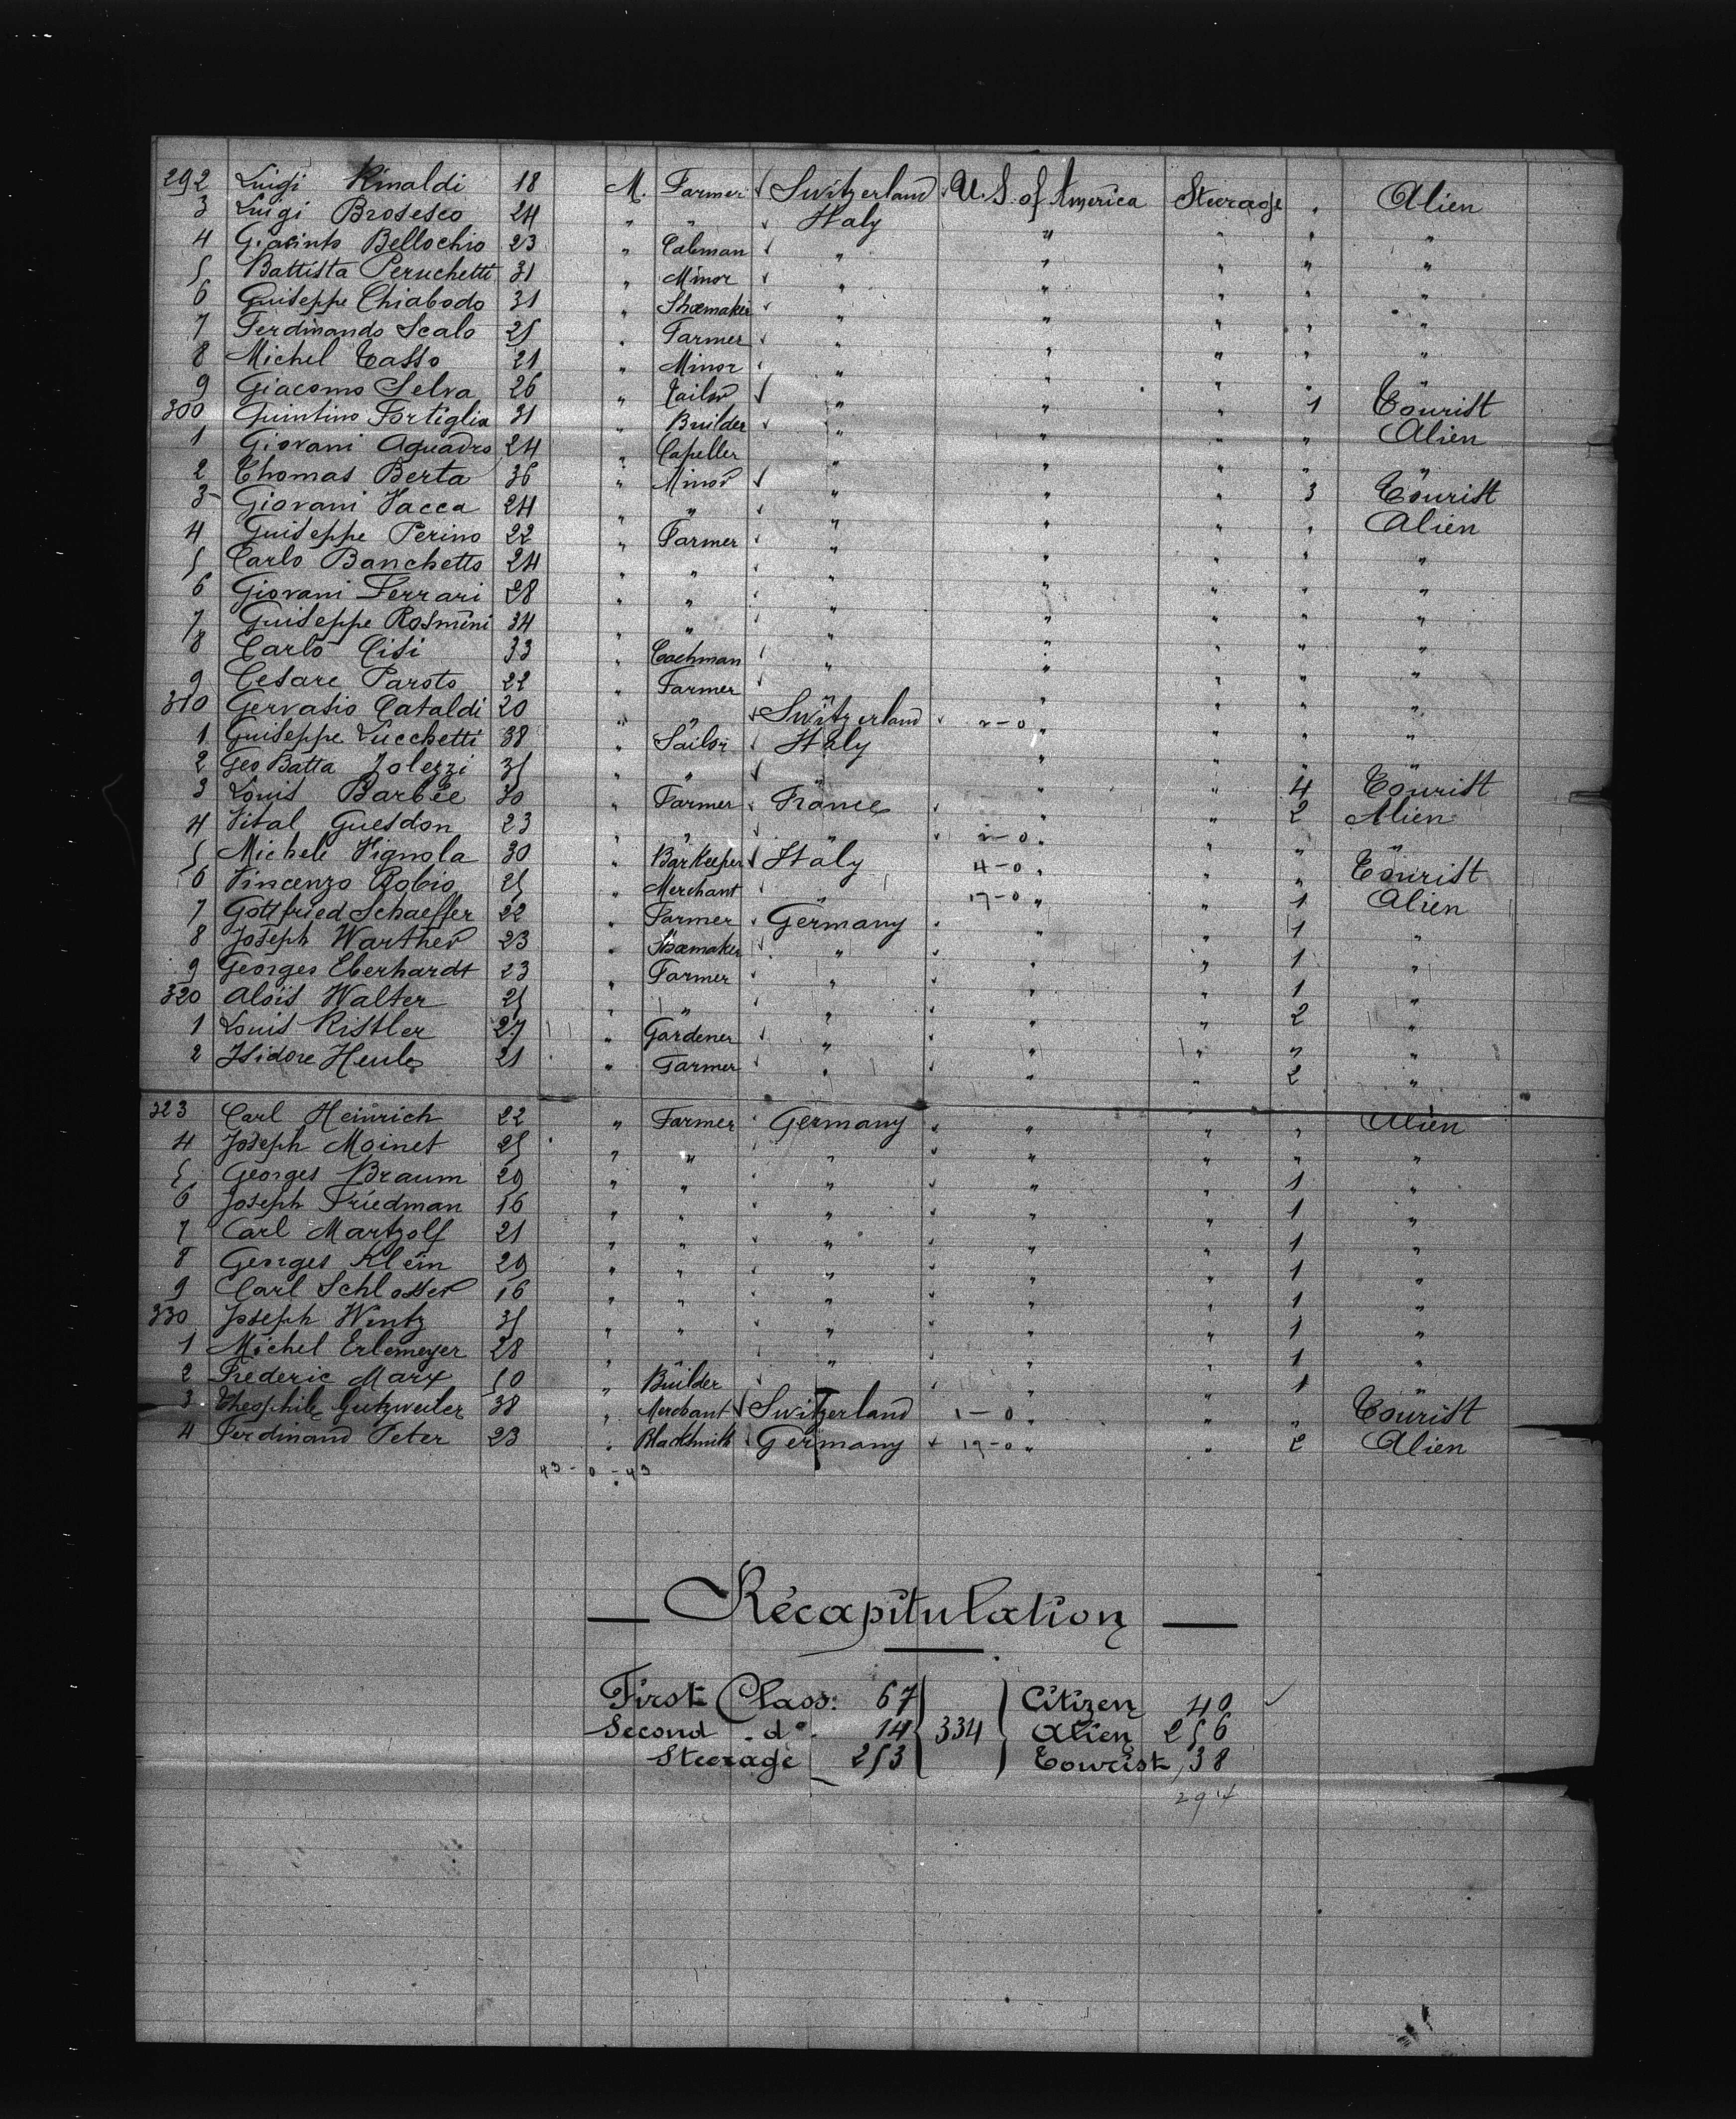 292 Luigi Rinaldi 18 M. Farmer Switzerland U.S. of America Steerage " Alien
3 Luigi Brosesco 24 " " Italy " " " "
4 Giacinto Bellochio 23 " Cabman " " " " "
5 Battista Peruchetti 31 " Minor " " " " "
6 Guiseppe Chiabodo 31 " Shoemaker " " " " "
7 Ferdinando Scalo 25 " Farmer " " " " "
8 Michel Tasso 21 " Minor " " " " "
9 Giacomo Selva 26 " Tailor " " " 1 Tourist
300 Quintino Fortiglia 31 " Builder " " " " Alien
1 Giovani Aquadro 24 " Capeller " " " " "
2 Thomas Berta 36 " Minor " " " 3 Tourist
3 Giovani Vacca 24 " " " " " " Alien
4 Guiseppe Perino 22 " Farmer " " " " "
5 Carlo Banchetto 24 " " " " " " "
6 Giovani Ferrari 28 " " " " " " "
7 Guiseppe Rosmini 34 " " " " " " "
8 Carlo Cisi 33 " Coachman " " " " "
9 Cesare Paroto 22 " Farmer " " " " "
310 Gervasio Cataldi 20 " " Switzerland 2-0 " " " "
1 Guiseppe Lucchetti 38 " Sailor Italy " " " "
2 Geo Batta Zolezzi 35 " " " " " 4 Tourist
3 Louis Barbée 30 " Farmer France " " 2 Alien
4 Vital Guesdon 23 " " " 2-0 " " " "
5 Michele Vignola 30 " Barkeeper Italy 4-0 " " " Tourist
6 Vincenzo Robio 25 " Merchant " 17-0 " " 1 Alien
7 Gottfried Schaeffer 22 " Farmer Germany " " 1 "
8 Joseph Warther 23 " Shoemaker " " " 1 "
9 Georges Eberhardt 23 " Farmer " " " 1 "
320 Aloïs Walter 25 " " " " " 2 "
1 Louis Ristler 27 " Gardener " " " " "
2 Isidore Heule 21 " Farmer " " " 2 "
323 Carl Heinrich 22 " Farmer Germany " " " Alien
4 Joseph Moinet 25 " " " " " " "
5 Georges Braum 29 " " " " " 1 "
6 Joseph Friedman 16 " " " " " 1 "
7 Carl Martzolf 21 " " " " " 1 "
8 Georges Klein 29 " " " " " 1 "
9 Carl Schlosser 16 " " " " " 1 "
330 Joseph Wintz 35 " " " " " 1 "
1 Michel Erlemeyer 28 " " " " " 1 "
2 Frederic Marx 50 " Builder " " " 1 "
3 Theophile Gutzweiler 38 " Merchant Switzerland 1-0 " " " Tourist
4 Ferdinand Peter 23 " Blacksmith Germany 19-0 " " 2 Alien
43-0-43
— Récapitulation —
First Class: 67 Citizen 40
Second do 14 334 Alien 256
Steerage 253 Tourist 38
294